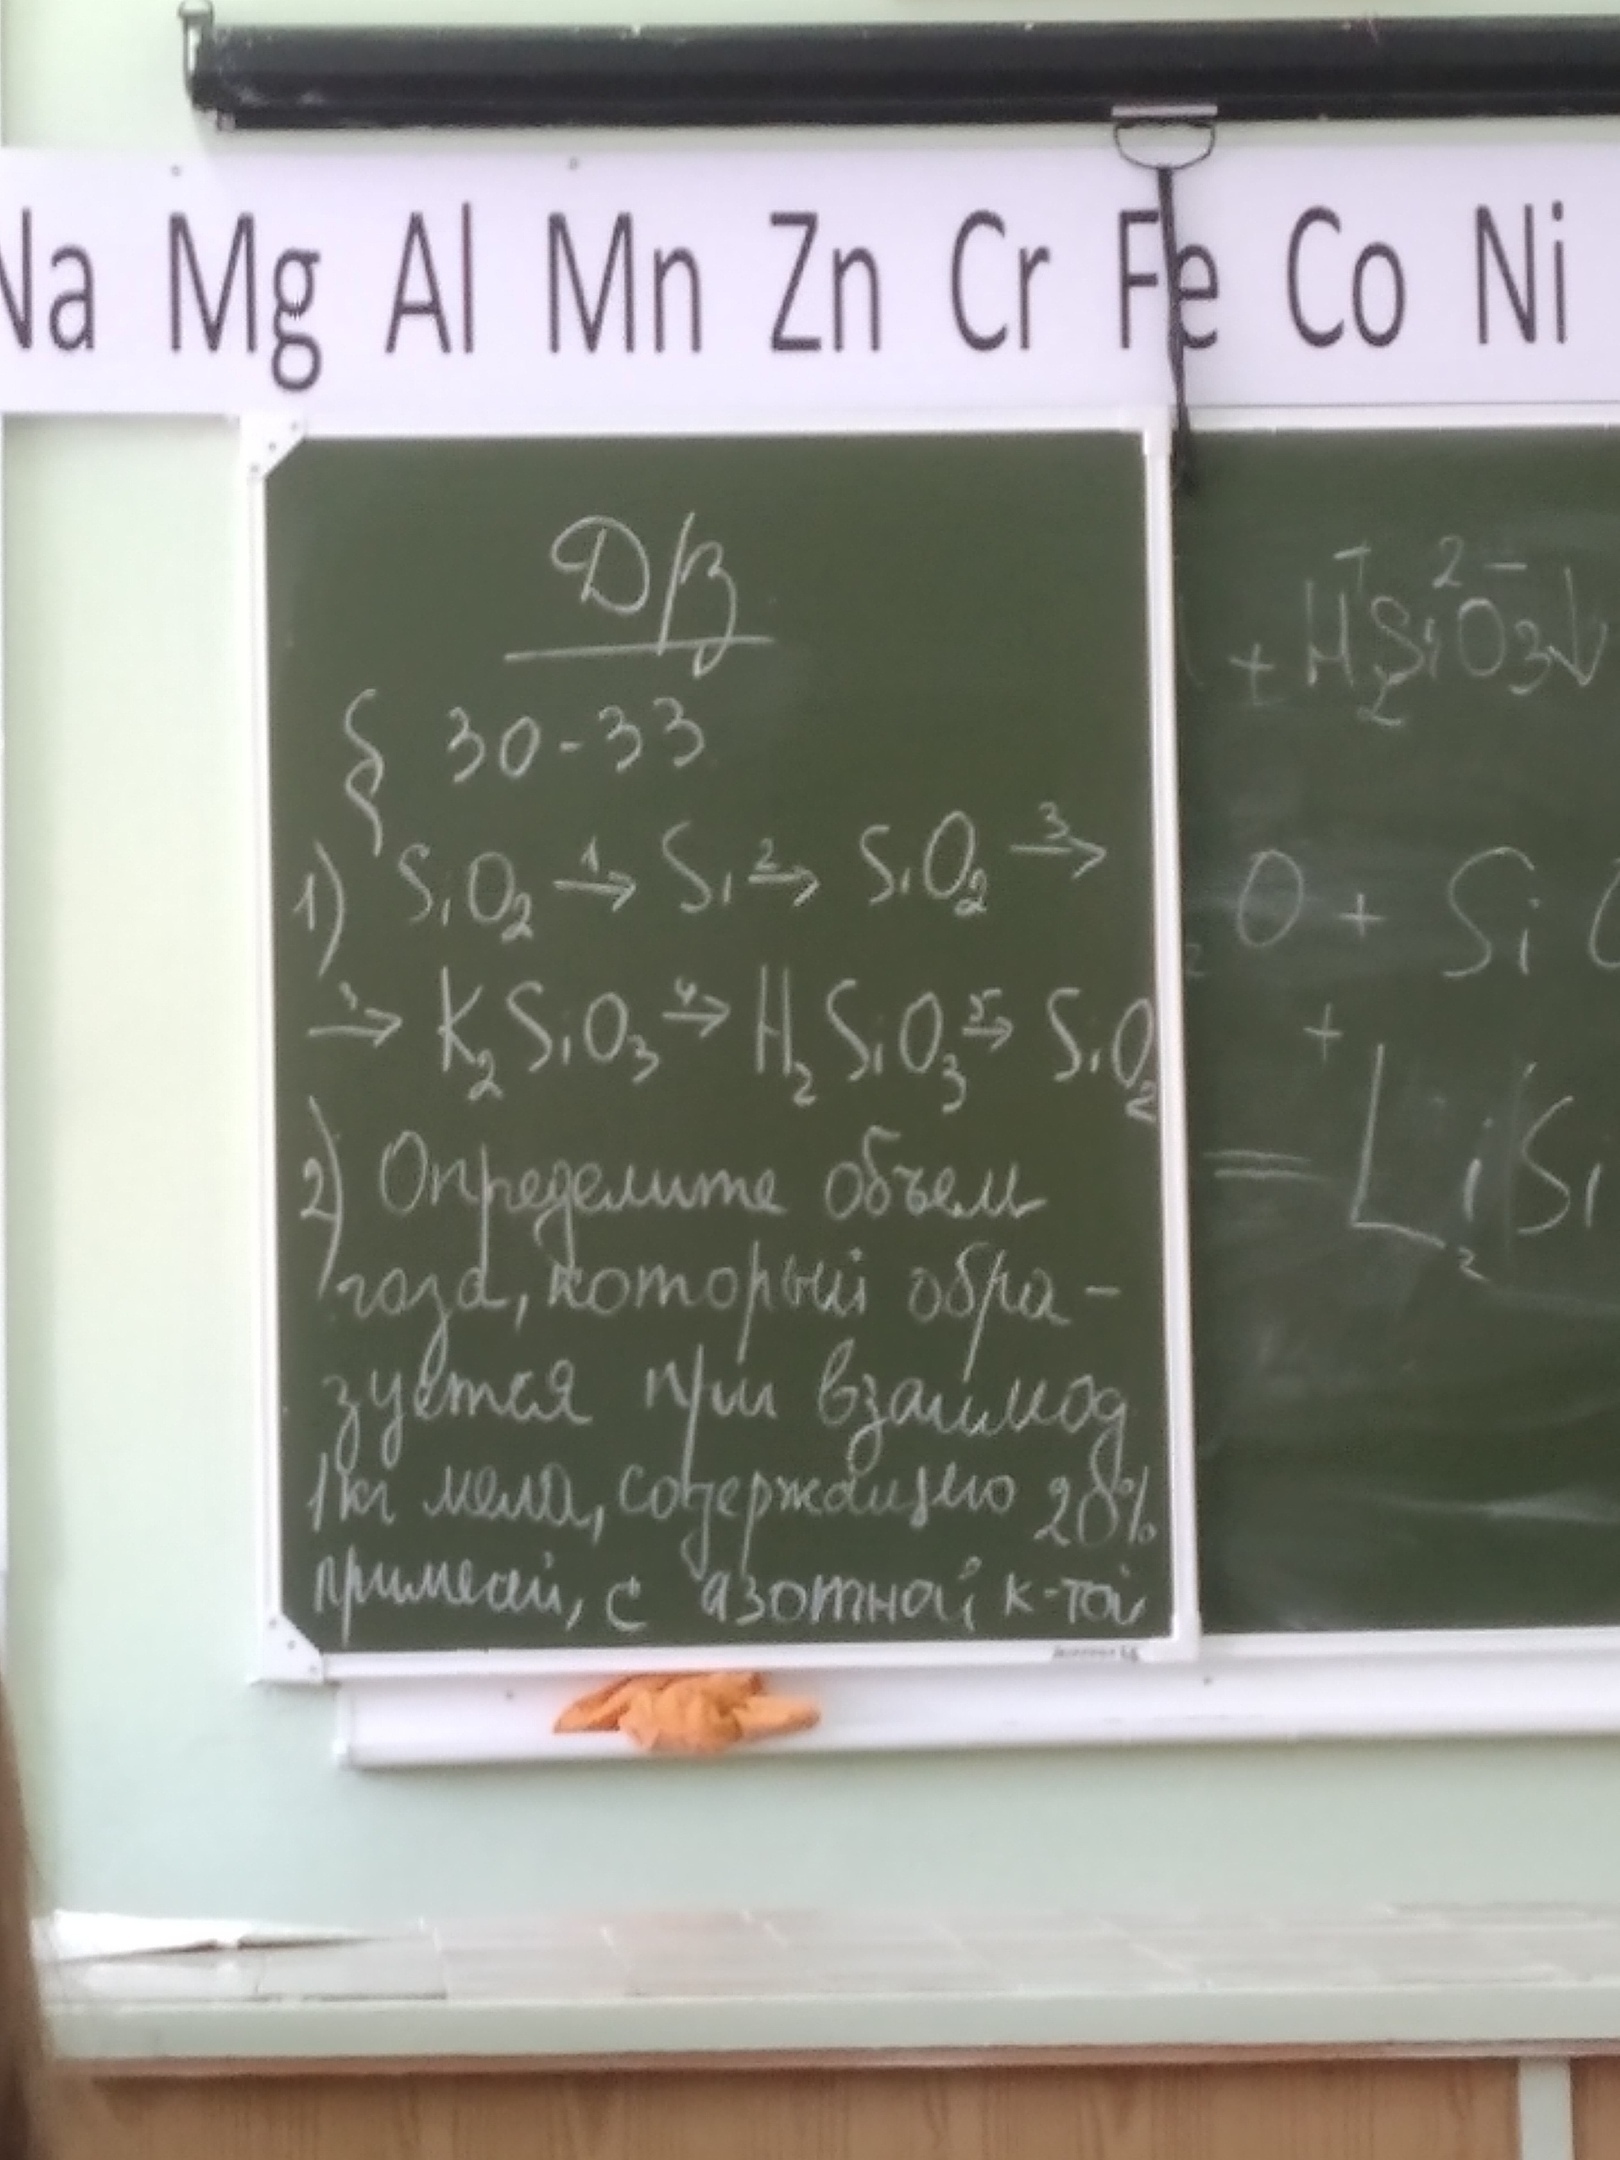 Na Mg Al Mn Zn Cr Fe Co Ni
Д/з
§ 30-33
1) SiO2 —1→ Si —2→ SiO2 —3→
—3→ K2SiO3 —4→ H2SiO3 —5→ SiO2
2) Определите объем
газа, который обра-
зуется при взаимод
1кг мела, содержащего 20%
примесей, с азотной к-той
+ H2SiO3↓
+ 2-
O + Si
+
= Li2Si